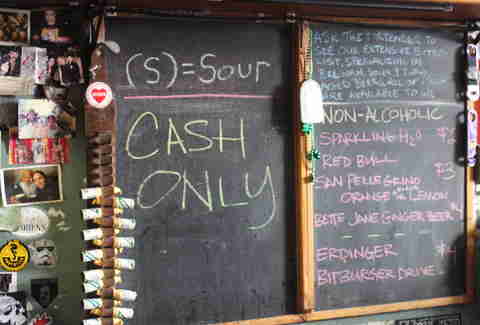 (S)=Sour
CASH
ONLY
ASK THE BARTENDER TO
SEE OUR EXTENSIVE BOTTLE
LIST, SPECIALIZING IN
BELGIAN, SOUR & 
BEER. ALL OF
ARE AVAILABLE TO GO
NON-ALCOHOLIC
SPARKLING H2O $2
RED BULL
SAN PELLEGRINO $3
ORANGE OR LEMON
BETTE JANE GINGER BEER $4
ERDINGER
BITBURGER DRIVE